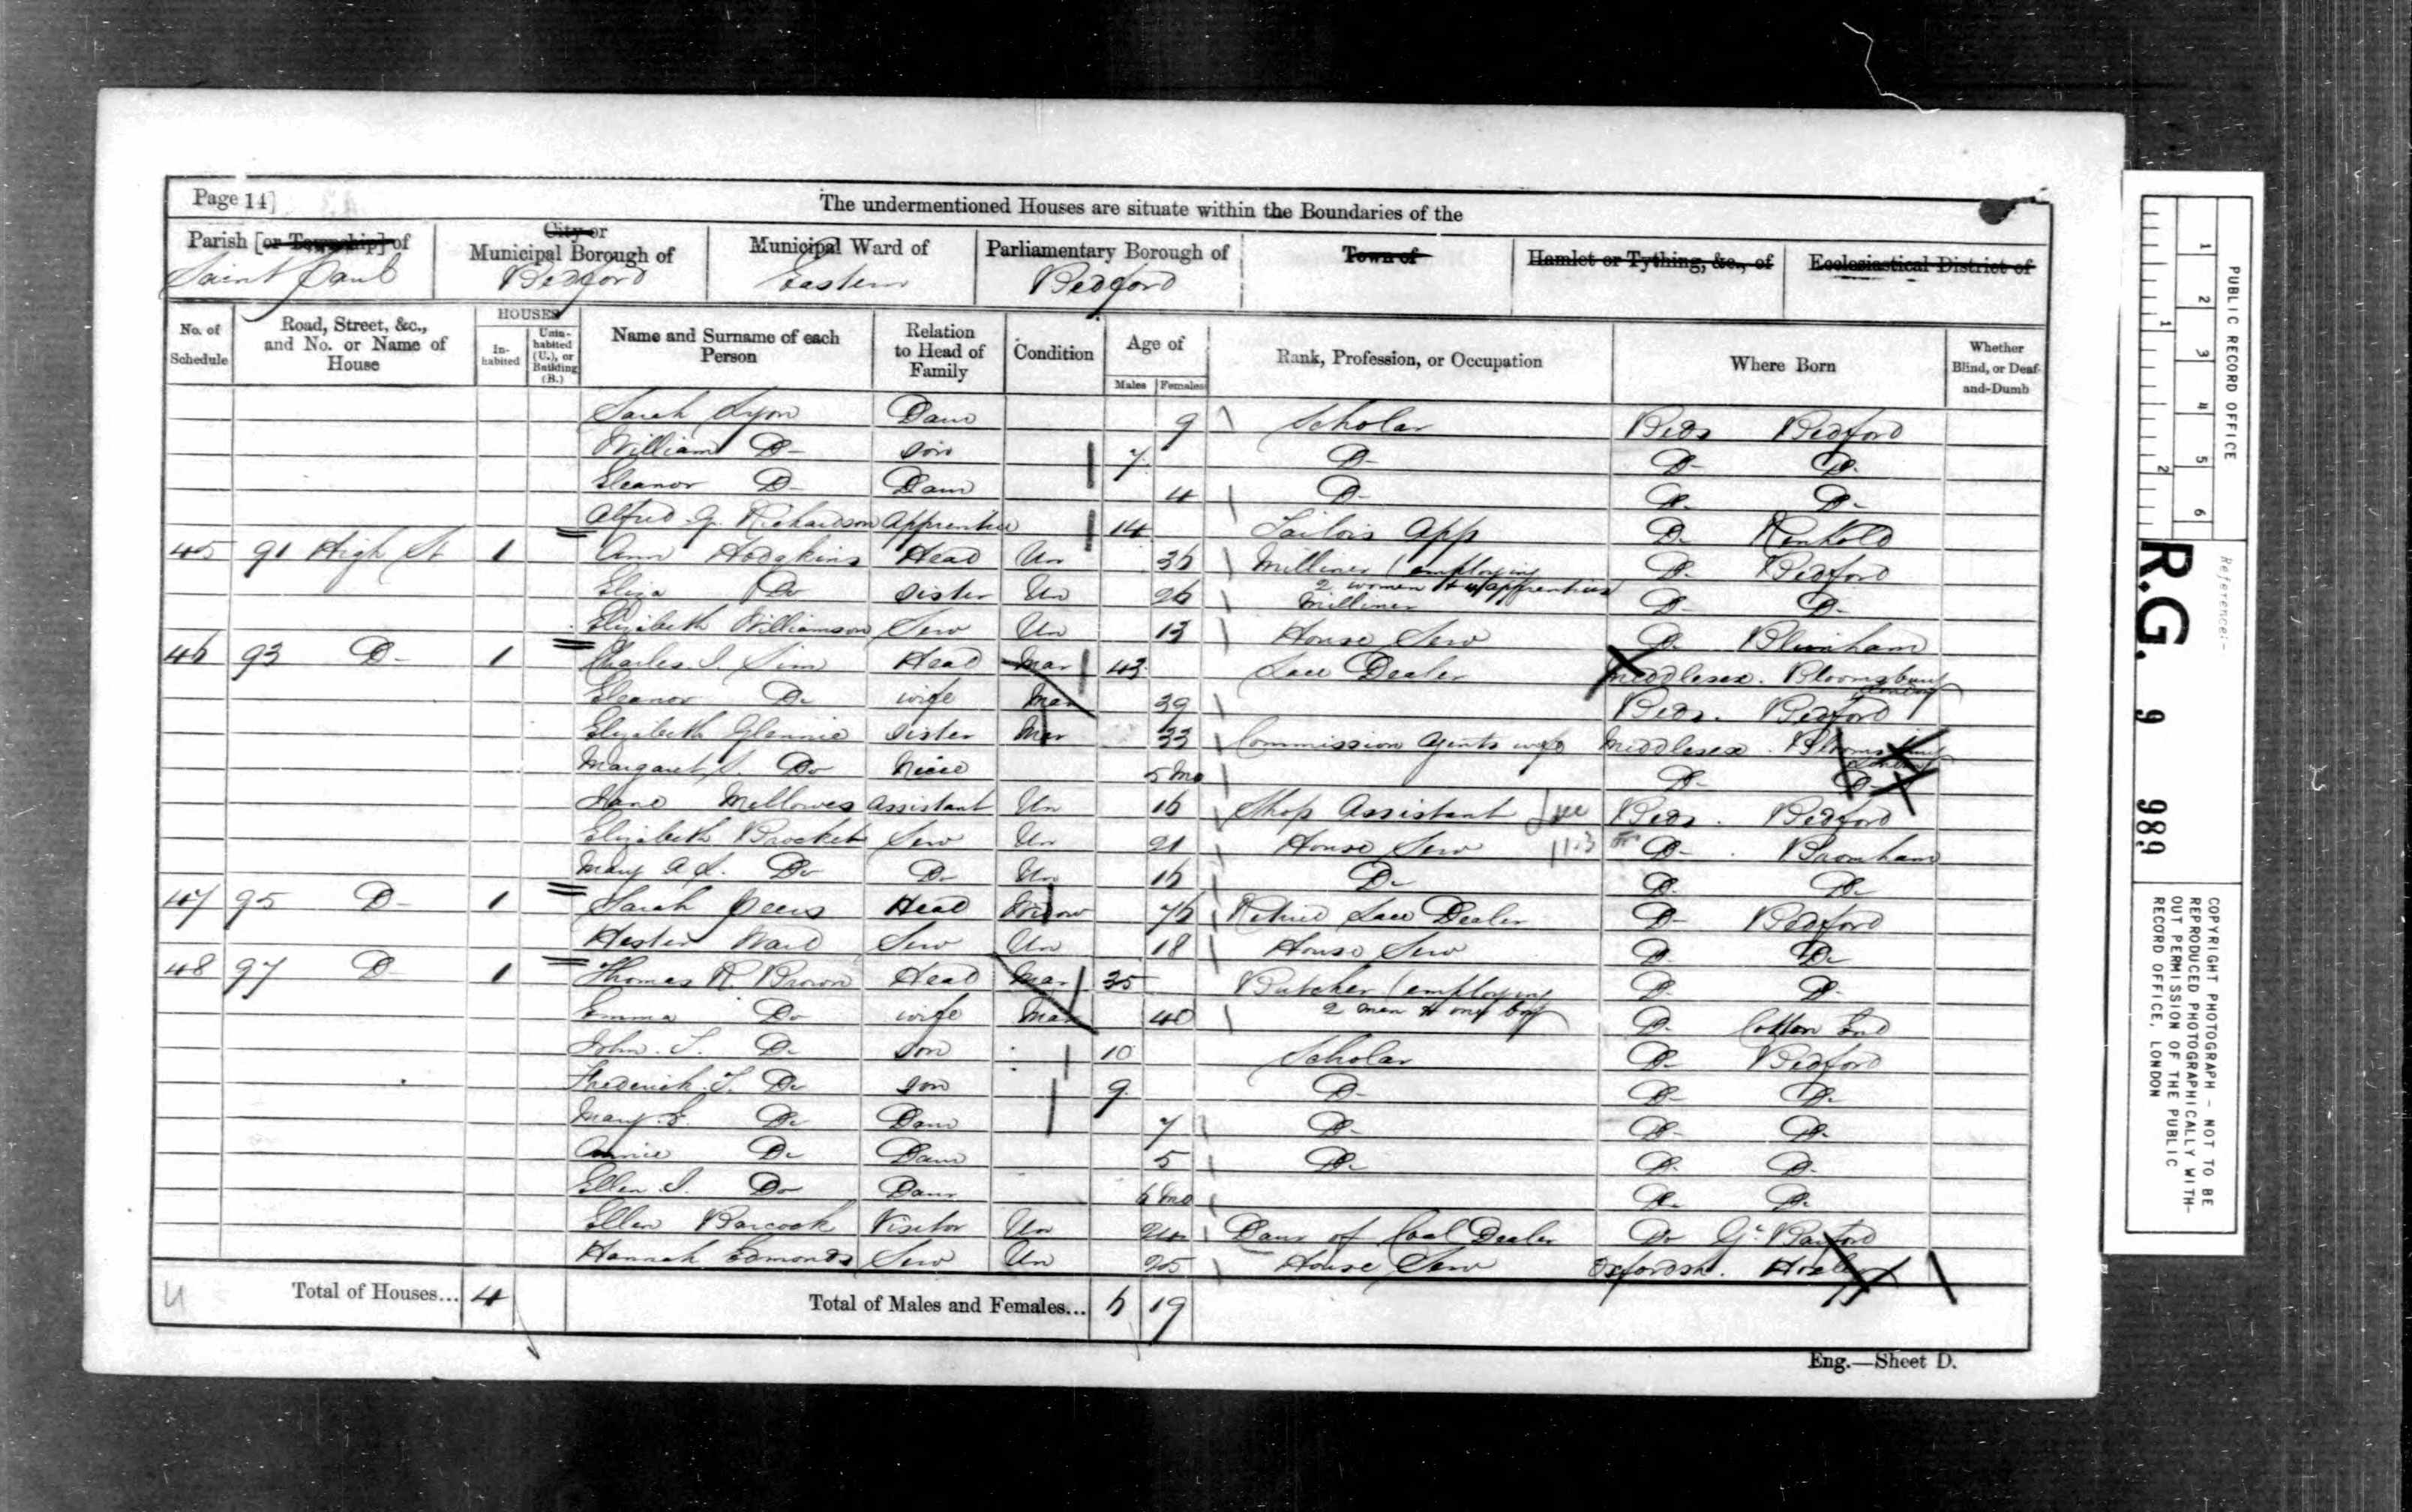 Page 14]
The undermentioned Houses are situate within the Boundaries of the
Parish [or Township] of
Saint Paul
City or
Municipal Borough of
Bedford
Municipal Ward of
Eastern
Parliamentary Borough of
Bedford
Town of
Hamlet or Tything, &c., of
Ecclesiastical District of
No. of Schedule
Road, Street, &c., and No. or Name of House
HOUSES
In-habited
Unin-habited (U.), or Building (B.)
Name and Surname of each Person
Relation to Head of Family
Condition
Age of
Males
Females
Rank, Profession, or Occupation
Where Born
Whether Blind, or Deaf-and-Dumb
Sarah Lyon Daur 9 Scholar Beds Bedford
William Do son 7 Do Do Do
Eleanor Do Daur 4 Do Do Do
Alfred G. Richardson Apprentice 14 Tailors App Do Renhold
45 91 High St 1 Ann Hodgkins Head Un 36 Milliner (employing 2 women & apprentices Do Bedford
Eliza Do sister Un 26 Milliner Do Do
Elizabeth Williamson Serv Un 13 House Serv Do Blunham
46 93 Do 1 Charles J. Sim Head Mar 43 Lace Dealer Middlesex. Bloomsbury London
Eleanor Do wife Mar 39 Beds. Bedford
Elizabeth Glennie sister Mar 33 Commission Agents wife Middlesex. Bloomsbury London
Margaret S. Do Niece 5 Mo Do Do
Jane Mellowes Assistant Un 16 Shop Assistant Lace Beds. Bedford
Elizabeth Brocket Serv Un 21 House Serv Do Bromham
Mary A L. Do Do Un 16 Do Do Do
47 95 Do 1 Sarah Peers Head Widow 76 Retired Lace Dealer Do Bedford
Hester Ward Serv Un 18 House Serv Do Do
48 97 Do 1 Thomas R. Brown Head Mar 35 Butcher (employing 2 men & one boy Do Do
Emma Do wife Mar 40 Do Cotton End
John. T. Do son 10 Scholar Do Bedford
Frederick. T. Do son 9 Do Do Do
Mary. E. Do Daur 7 Do Do Do
Annie Do Daur 5 Do Do Do
Ellen. J. Do Daur 6 Mo Do Do
Ellen Barcock Visitor Un 24 Daur of Coal Dealer Do Gt Barford
Hannah Edmonds Serv Un 25 House Serv Oxfordsh.
Total of Houses... 4
Total of Males and Females... 6 19
Eng.—Sheet D.
PUBLIC RECORD OFFICE
1 2 3 4 5 6
1 2
Reference:-
R.G. 9 989
COPYRIGHT PHOTOGRAPH - NOT TO BE
REPRODUCED PHOTOGRAPHICALLY WITH-
OUT PERMISSION OF THE PUBLIC
RECORD OFFICE, LONDON